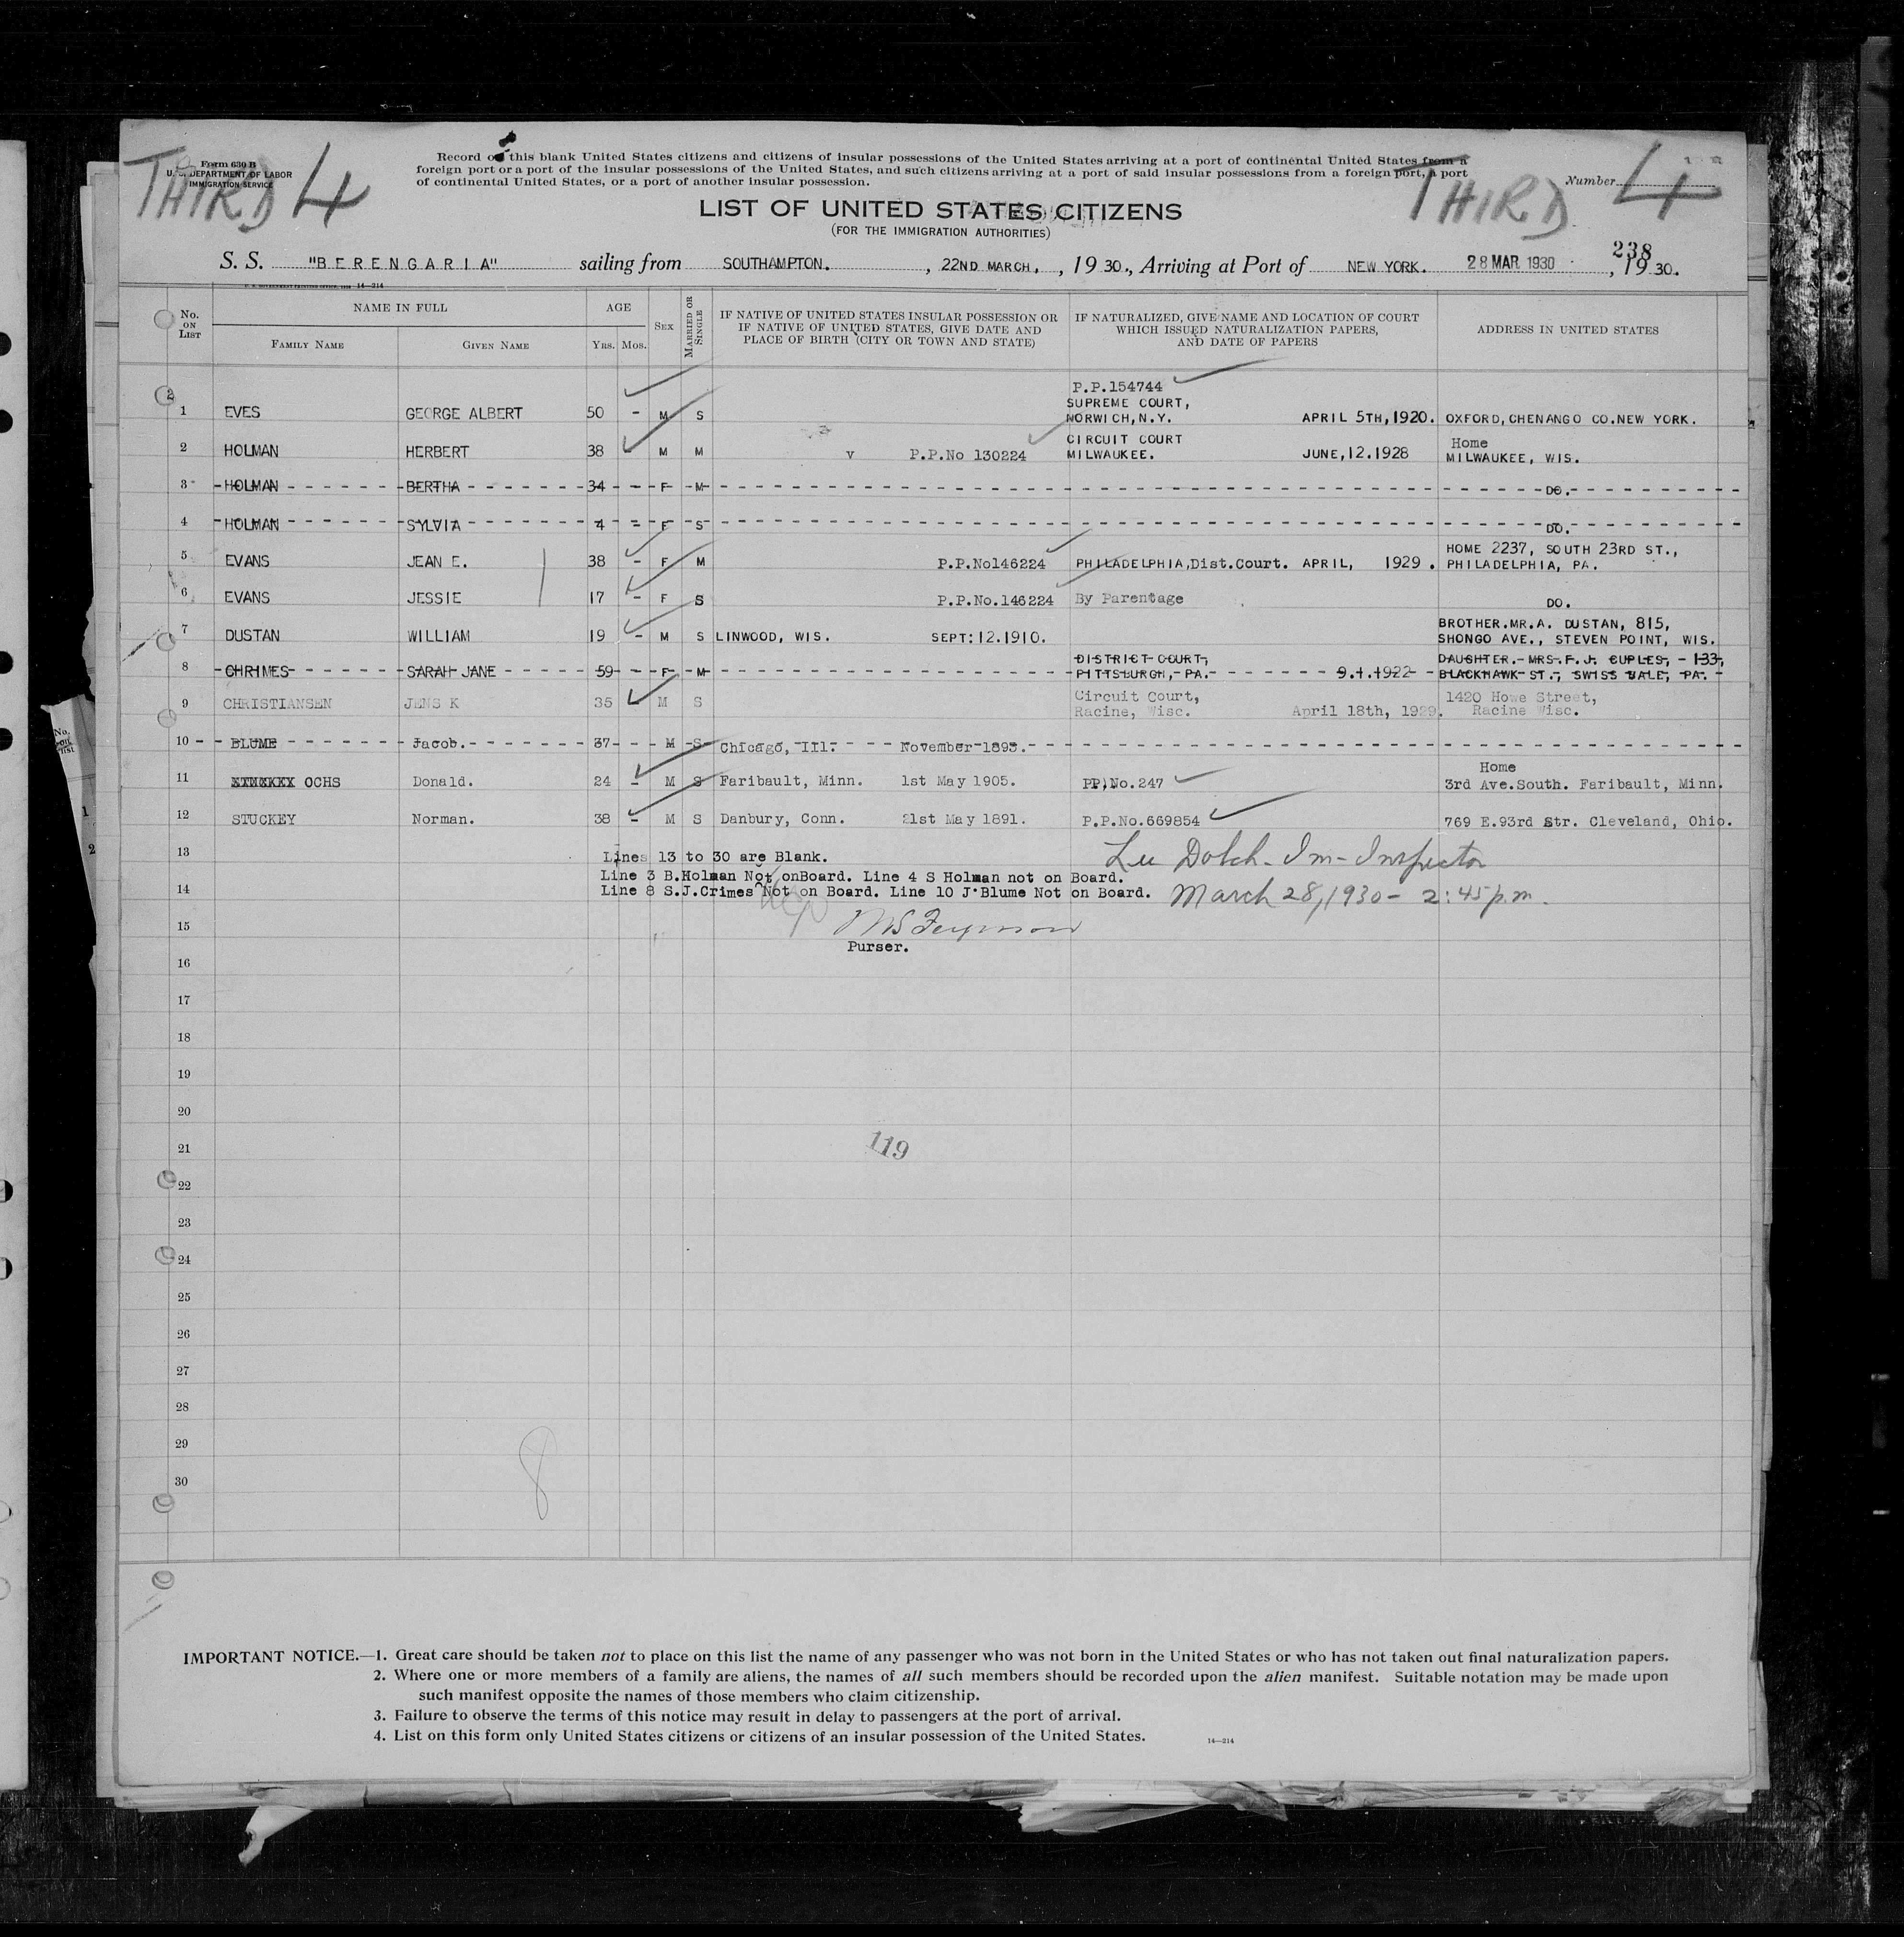 THIRD 4
Form 630 B
U. S. DEPARTMENT OF LABOR
IMMIGRATION SERVICE
Record on this blank United States citizens and citizens of insular possessions of the United States arriving at a port of continental United States from a
foreign port or a port of the insular possessions of the United States, and such citizens arriving at a port of said insular possessions from a foreign port, a port
of continental United States, or a port of another insular possession.
THIRD
Number 4
LIST OF UNITED STATES CITIZENS
(FOR THE IMMIGRATION AUTHORITIES)
238
S. S. "BERENGARIA" sailing from SOUTHAMPTON. , 22ND MARCH, , 1930., Arriving at Port of NEW YORK. 28 MAR 1930 , 1930.
14—214
No. ON LIST
NAME IN FULL
FAMILY NAME GIVEN NAME
AGE
YRS. MOS.
SEX
MARRIED OR SINGLE
IF NATIVE OF UNITED STATES INSULAR POSSESSION OR
IF NATIVE OF UNITED STATES, GIVE DATE AND
PLACE OF BIRTH (CITY OR TOWN AND STATE)
IF NATURALIZED, GIVE NAME AND LOCATION OF COURT
WHICH ISSUED NATURALIZATION PAPERS,
AND DATE OF PAPERS
ADDRESS IN UNITED STATES
P.P.154744
SUPREME COURT,
1 EVES GEORGE ALBERT 50 - M S NORWICH, N.Y. APRIL 5TH, 1920. OXFORD, CHENANGO CO. NEW YORK.
CIRCUIT COURT Home
2 HOLMAN HERBERT 38 - M M v P.P.No 130224 MILWAUKEE. JUNE, 12.1928 MILWAUKEE, WIS.
3 HOLMAN BERTHA 34 - F M DO.
4 HOLMAN SYLVIA 4 - F S DO.
HOME 2237, SOUTH 23RD ST.,
5 EVANS JEAN E. 38 - F M P.P.No146224 PHILADELPHIA, Dist.Court. APRIL, 1929. PHILADELPHIA, PA.
6 EVANS JESSIE 17 - F S P.P.No.146224 By Parentage DO.
BROTHER.MR.A. DUSTAN, 815,
7 DUSTAN WILLIAM 19 - M S LINWOOD, WIS. SEPT:12.1910. SHONGO AVE., STEVEN POINT, WIS.
DISTRICT COURT, DAUGHTER. MRS. F. J. CUPLES, 133,
8 CHRIMES SARAH JANE 59 - F M PITTSBURGH, PA. 9.1.1922 BLACKHAWK ST., SWISS VALE, PA.
Circuit Court, 1420 Howe Street,
9 CHRISTIANSEN JENS K 35 M S Racine, Wisc. April 18th, 1929. Racine Wisc.
10 BLUME Jacob. 37 - M S Chicago, Ill. November 1893.
Home
11 OCHS Donald. 24 - M S Faribault, Minn. 1st May 1905. PP.No.247 3rd Ave.South. Faribault, Minn.
12 STUCKEY Norman. 38 - M S Danbury, Conn. 21st May 1891. P.P.No.669854 769 E.93rd Str. Cleveland, Ohio.
13 Lines 13 to 30 are Blank.
Line 3 B.Holman Not onBoard. Line 4 S Holman not on Board.
14 Line 8 S.J.Crimes Not on Board. Line 10 J.Blume Not on Board.
Im-Inspector
March 28, 1930 - 2:45 p.m.
15
Purser.
16
17
18
19
20
119
21
22
23
24
25
26
27
28
29
30
8
IMPORTANT NOTICE.—1. Great care should be taken not to place on this list the name of any passenger who was not born in the United States or who has not taken out final naturalization papers.
2. Where one or more members of a family are aliens, the names of all such members should be recorded upon the alien manifest. Suitable notation may be made upon
such manifest opposite the names of those members who claim citizenship.
3. Failure to observe the terms of this notice may result in delay to passengers at the port of arrival.
4. List on this form only United States citizens or citizens of an insular possession of the United States.
14—214